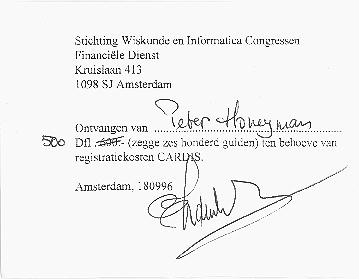 Stichting Wiskunde en Informatica Congressen
Financiële Dienst
Kruislaan 413
1098 SJ Amsterdam
Ontvangen van Peter Honeyman
500 Dfl. 600.- (zegge zes honderd gulden) ten behoeve van
registratiekosten CARDIS.
Amsterdam, 180996